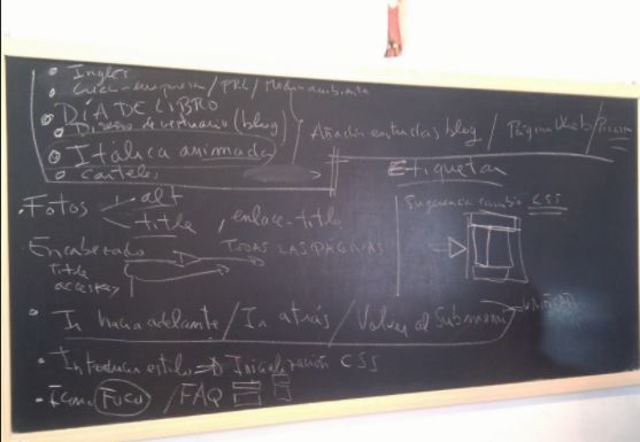 Inglés
/ PRL / Medio ambiente
DÍA DE LIBRO
Diseño de vestuario (blog)
Itálica animada
Carteles
Añadir entradas blog / Página Web / Picasa
Etiquetas
Fotos alt
title, enlace-title
Sugerencia cambio CSS
Encabezado TODAS LAS PÁGINAS
Title
acceskey
Ir hacia adelante / Ir atrás / Volver al Submenú
Introducir estilo Inicialización CSS
Icono Foco / FAQ